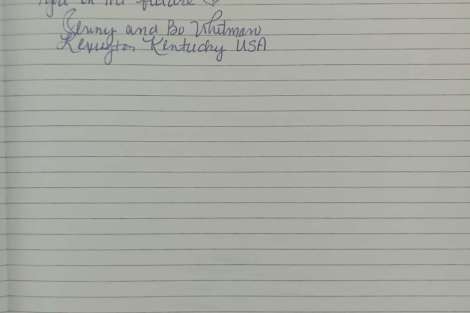 in the future
Jenny and Bo Whitman
Lexington Kentucky USA